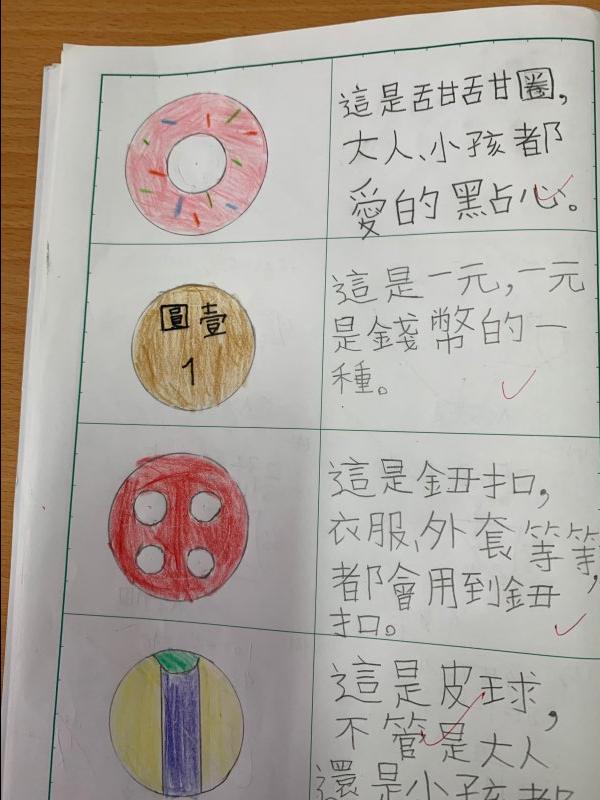 這是舌甘舌甘圈，
大人、小孩都
愛的黑占心。
圓壹
1
這是一元，一元
是錢幣的一
種。
這是鈕扣，
衣服、外套等等，
都會用到鈕
扣。
這是皮球，
不管是大人
還是小孩都